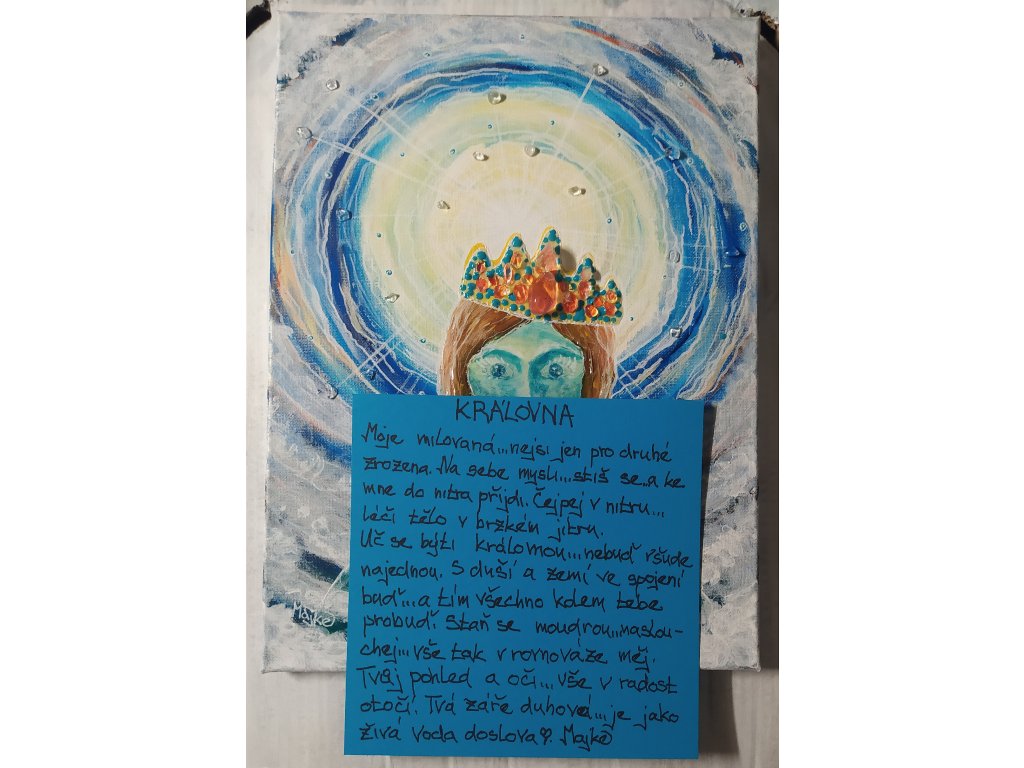 KRÁLOVNA
Moje milovaná...nejsi jen pro druhé
zrozena. Na sebe mysli...stiš se..a ke
mne do nitra přijdi. Čejpej v nitru...
léčí tělo v brzkém jitru.
Uč se býti královnou...nebuď všude
najednou. S duší a zemí ve spojení
buď...a tím všechno kolem tebe
probudí. Staň se moudrou..naslou-
chej...vše tak v rovnováze měj.
Tvůj pohled a oči...vše v radost
otočí. Tvá záře duhová...je jako
živá voda doslova. Majka
Majka